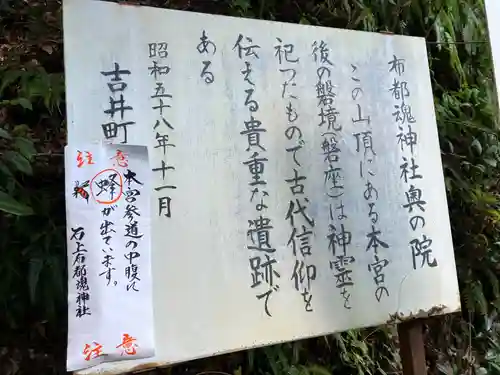 布都魂神社奥の院
この山頂にある本宮の
後の磐境(磐座)は神霊を
祀つたもので古代信仰を
伝える貴重な遺跡で
ある
昭和五十八年十一月
吉井町
注意
本宮参道の中腹に
蜂が出ています。
石上布都魂神社
注意